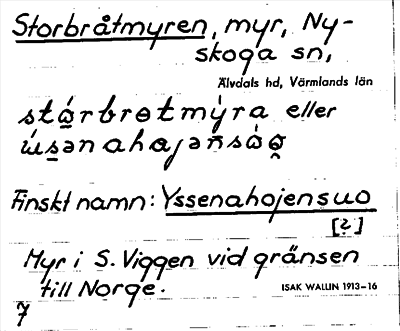 Storbråtmyren, myr, Ny-
skoga sn,
Älvdals hd, Värmlands län
eller
Finskt namn: Yssenahojensuo
[2]
Myr i S. Viggen vid gränsen
till Norge.
ISAK WALLIN 1913-16
7